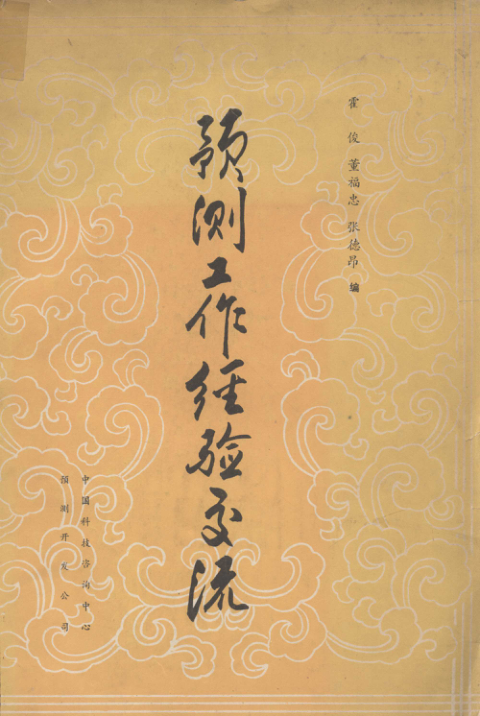 霍俊 董福忠 张德昂 编
预测工作经验交流
中国科技咨询中心
预测开发公司